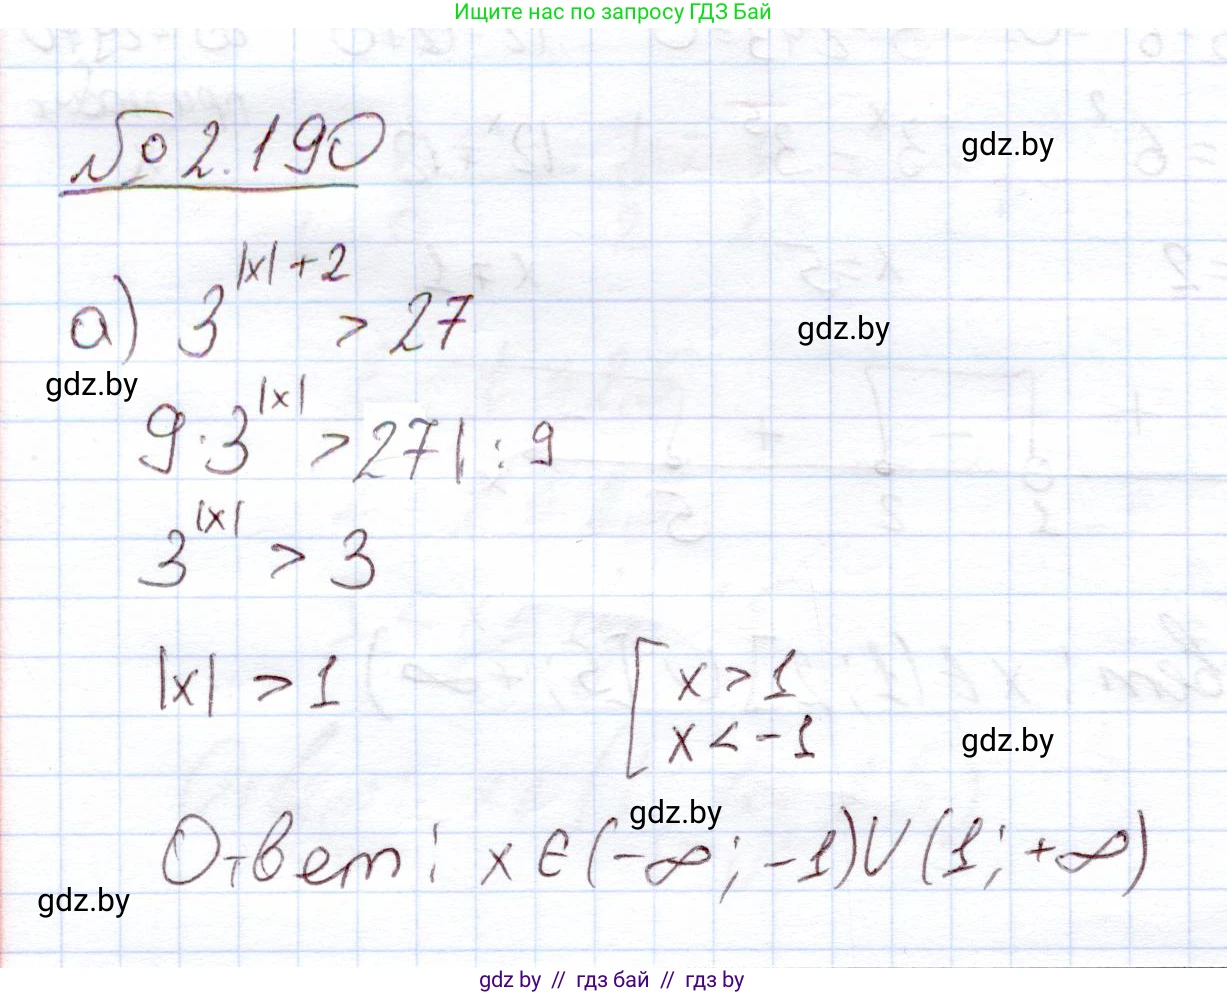 Ищите нас по запросу ГДЗ Бай
№ 2.190
gdz.by
а) 3^{|x|+2} > 27
gdz.by
gdz.by
9·3^{|x|} > 27 | : 9
3^{|x|} > 3
|x| > 1 [ x > 1
x < -1
gdz.by
gdz.by
Ответ: x ∈ (-∞; -1) ∪ (1; +∞)
gdz.by
gdz.by // гдз бай // гдз by